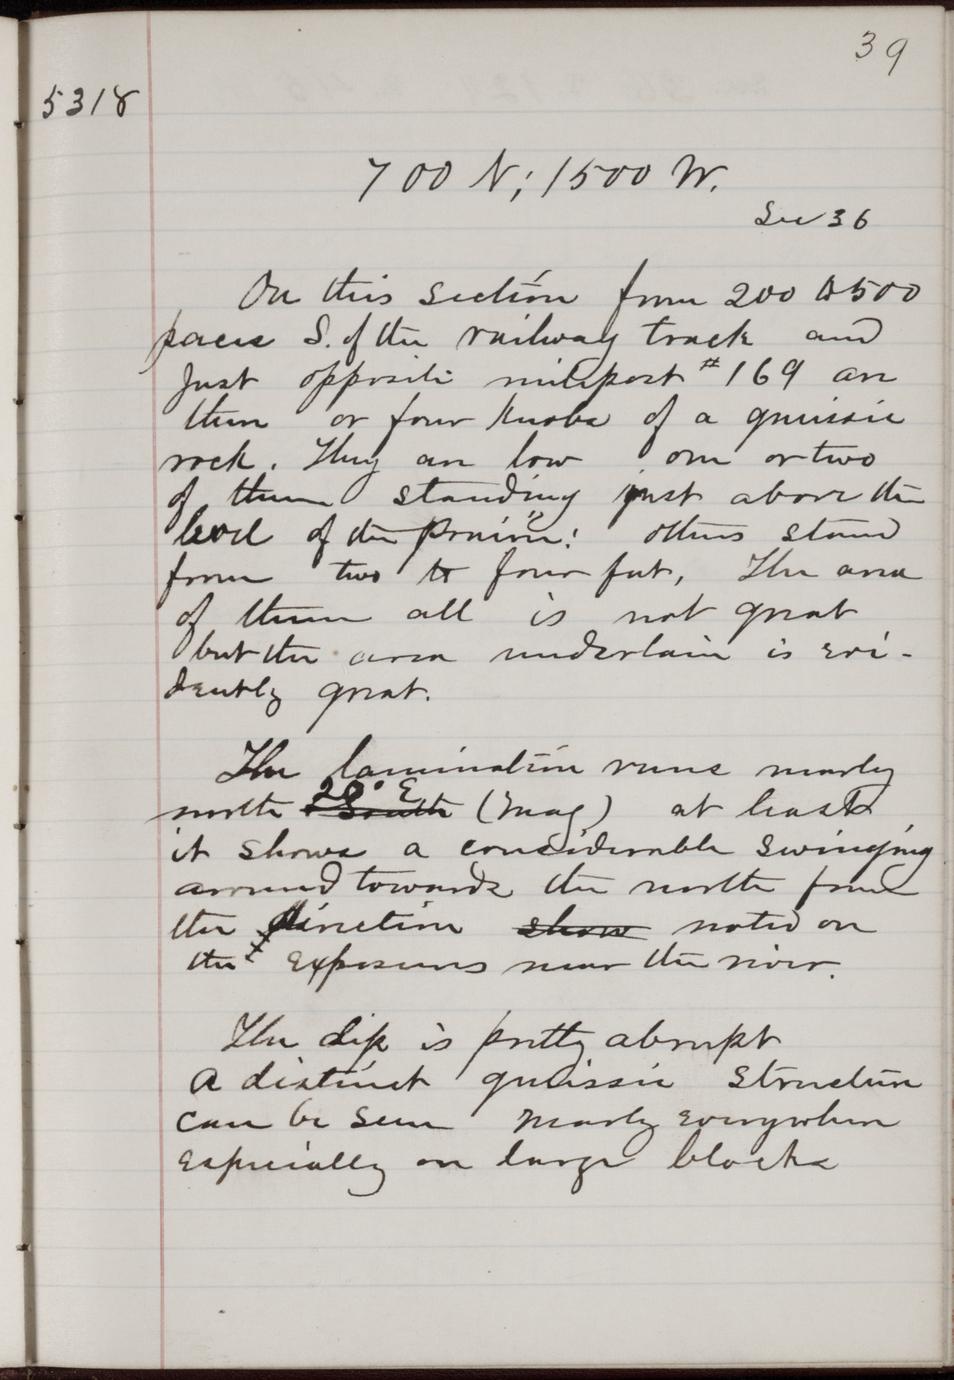 39
5318
700 N; 1500 W.
Sec 36
On this section from 200 to 500
paces S. of the railway track and
just opposite milepost #169 are
three or four knobs of a gneissic
rock. They are low one or two
of them standing just above the
level of the prairie: others stand
from two to four feet, The area
of them all is not great
but the area underlain is evi-
dently great.
The lamination runs nearly
north 20° E south (mag) at least
it shows a considerable swinging
around towards the north from
the direction show noted on
the exposures near the river.
The dip is pretty abrupt
A distinct gneissic structure
can be seen nearly everywhere
especially on large blocks